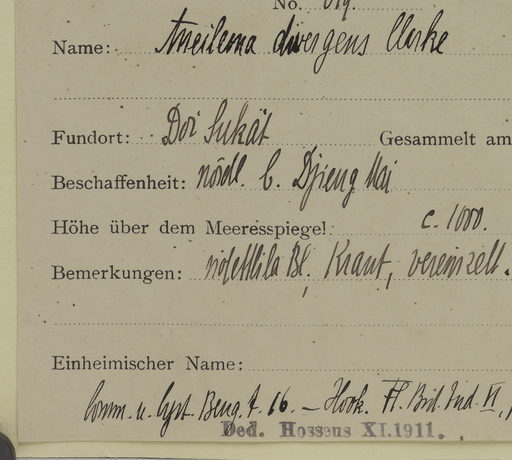 No. 619.
Name: Aneilema divergens Clarke
Fundort: Doi Sukät Gesammelt am
Beschaffenheit: nördl. b. Djieng Mai
Höhe über dem Meeresspiegel: c. 1000.
Bemerkungen: violettlila Bl., Kraut, vereinzelt.
Einheimischer Name:
Comm. u. Cyrt. Beng. t. 16. – Hook. Fl. Brit. Ind. VI,
Ded. Hosseus XI.1911.